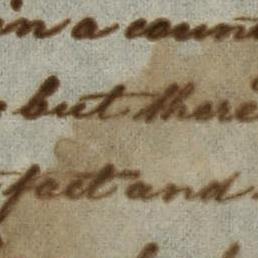 in a coun
but there
fact and